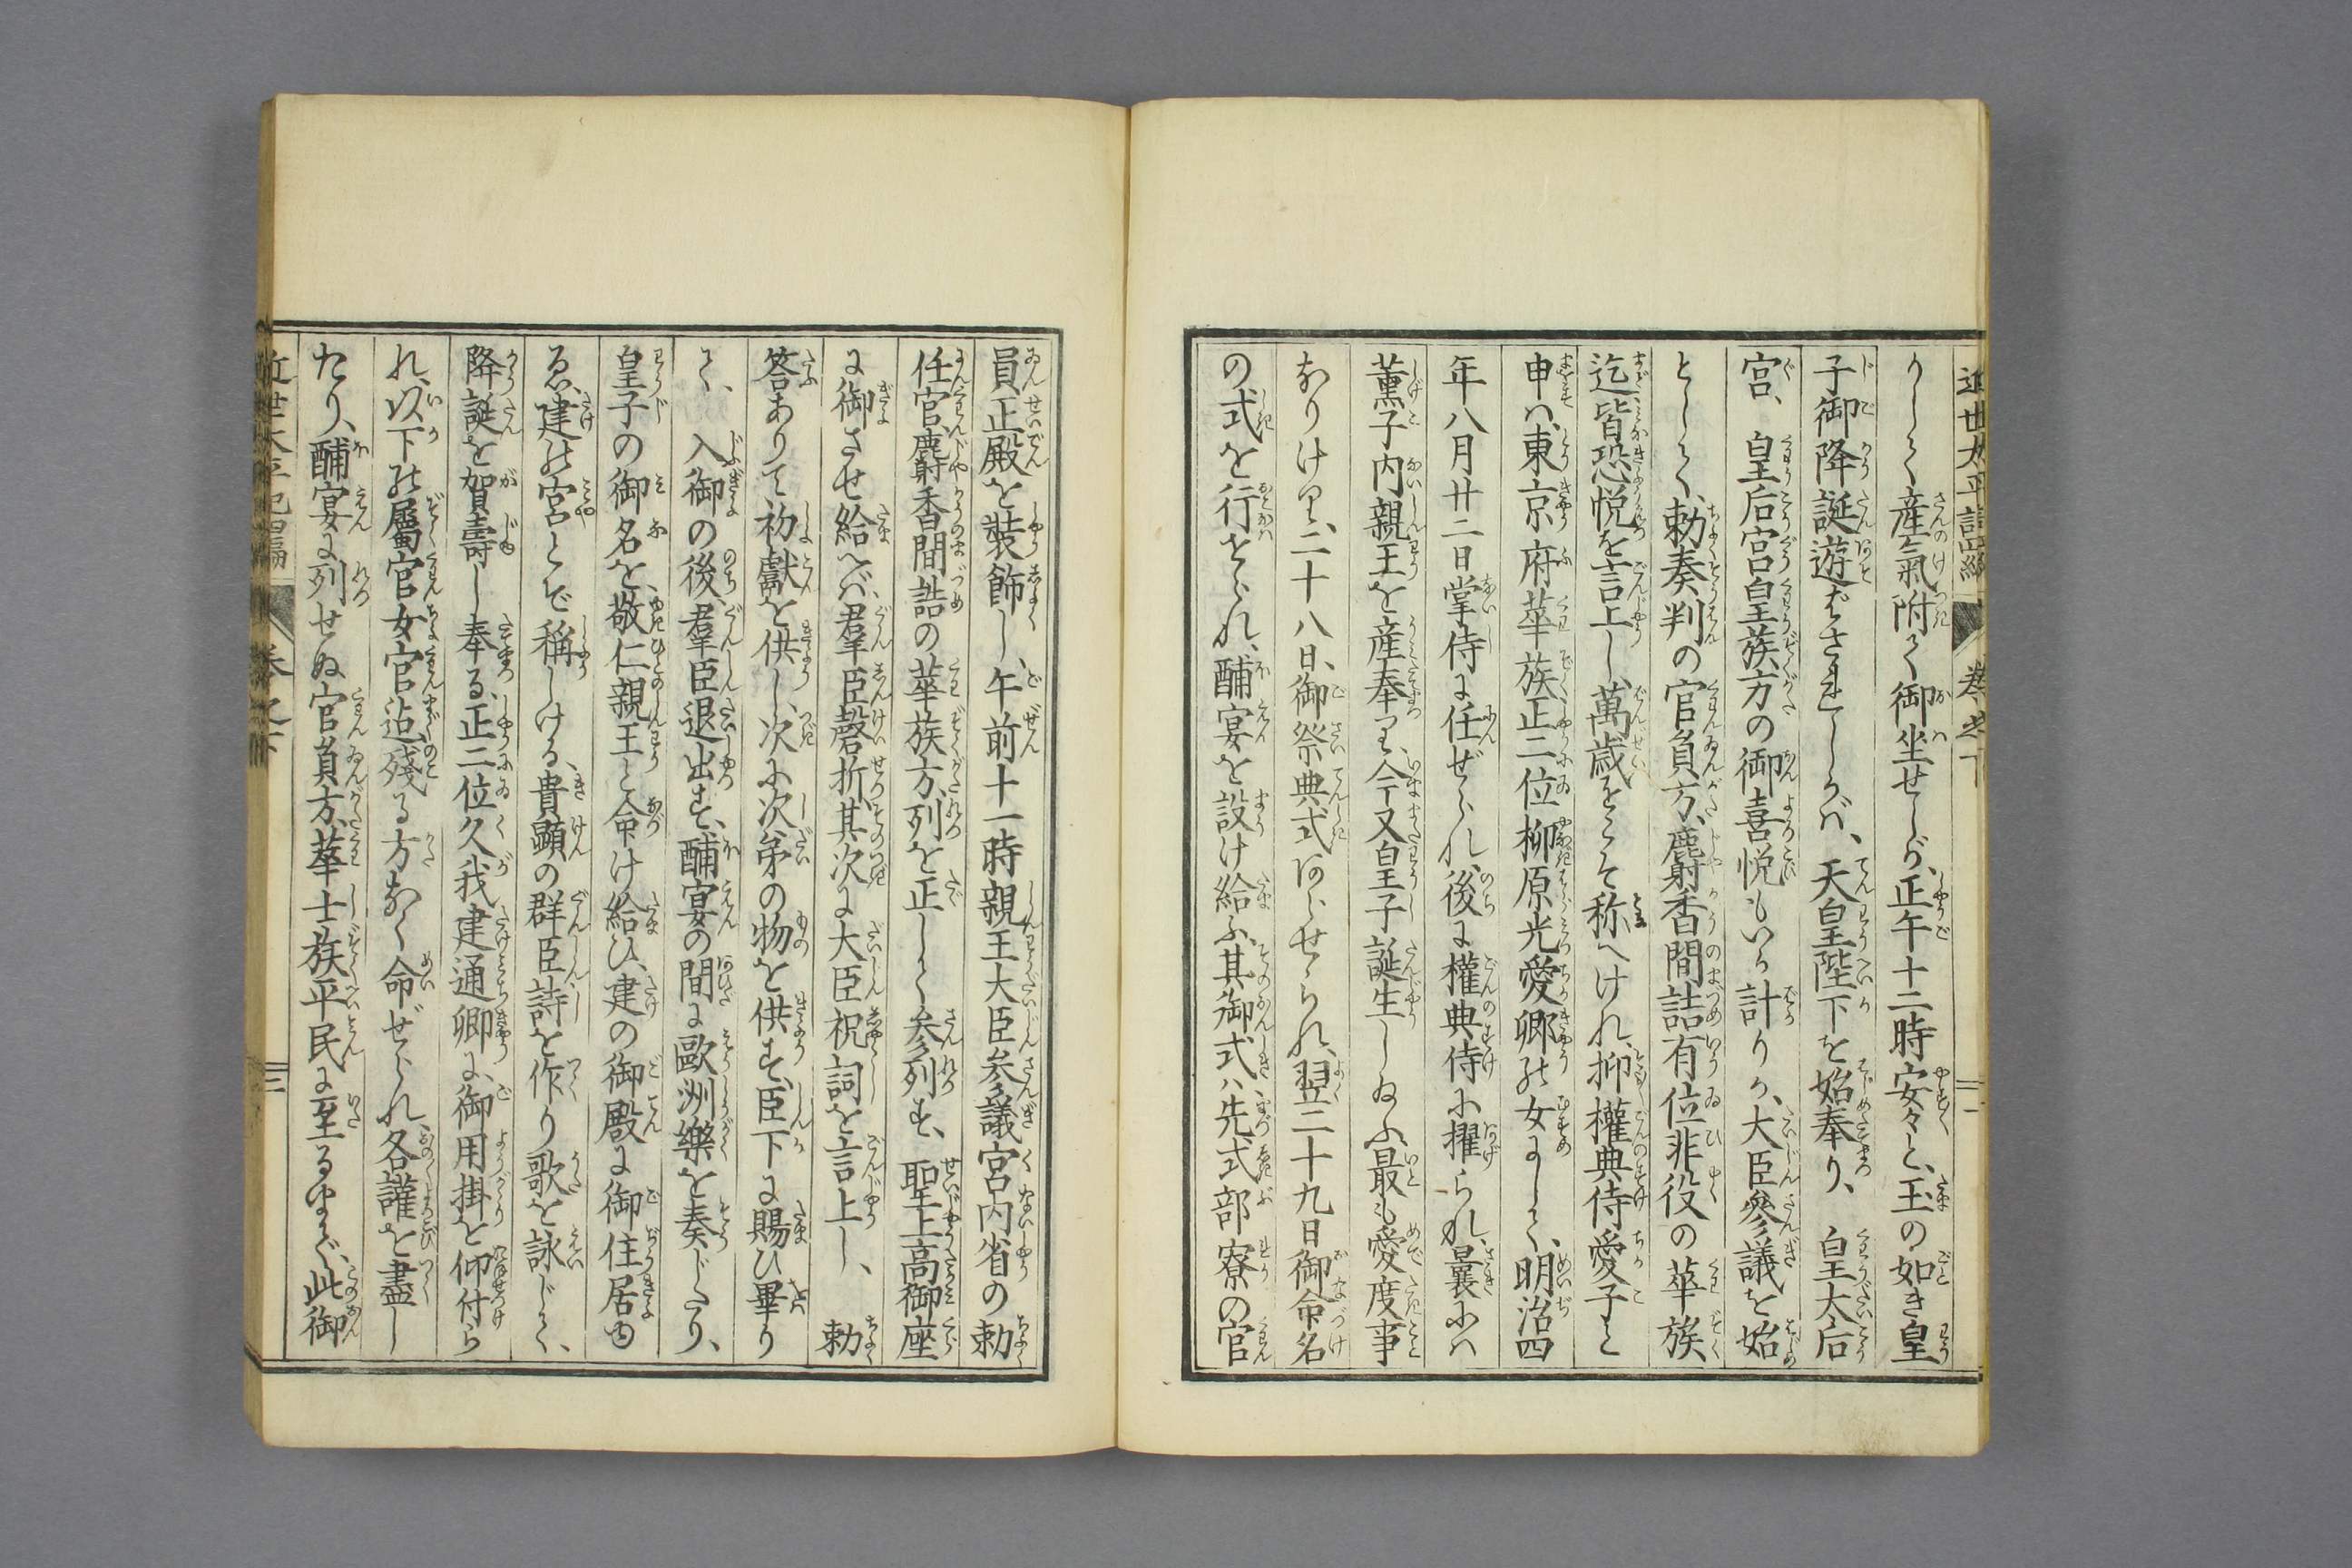 近世太平記四編 巻之下 一
りしく産氣附く御坐せしが、正午十二時安々と、玉の如き皇
子御降誕遊ばされしかバ、天皇陛下を始奉り、皇太后
宮、皇后宮皇族方の御喜悦もいか計りか、大臣參議を始
としく、勅奏判の官員方、麝香間詰有位非役の華族、
迄皆恐悦を言上し、萬歳をこそ称へけれ、抑權典侍愛子と
申ハ、東京府華族正二位柳原光愛卿の女にして、明治四
年八月廿二日掌侍に任ぜられ、後に權典侍に擢られ、曩にハ
薫子内親王を産奉り、今又皇子誕生しぬふ最も愛度事
なりけり、二十八日、御祭典式あらせられ、翌二十九日御命名
の式を行とられ、酺宴を設け給ふ、其御式ハ先式部寮の官
員、正殿を装飾し、午前十一時親王大臣参議宮内省の勅
任官、麝香間詰の華族方、列を正しく参列す、聖上高御座
に御させ給へバ、群臣磬折、其次に大臣祝詞を言上し、勅
答ありて初獻を供し、次に次第の物を供す、臣下に賜ひ畢り
て、入御の後、群臣退出す、酺宴の間に歐洲樂を奏したり、
皇子の御名を、敬仁親王と命け給ひ、建の御殿に御住居ゆ
ゑ、建の宮とぞ稱しける、貴顯の群臣詩を作り歌を詠じて、
降誕を賀壽し奉る、正二位久我建通卿に、御用掛を仰付ら
れ、以下の屬官女官迄、殘る方なく命ぜられ、各讙を盡し
たり、酺宴に列せぬ官員方、華士族平民に至るまで、此御
近世太平記四編 巻之下 二